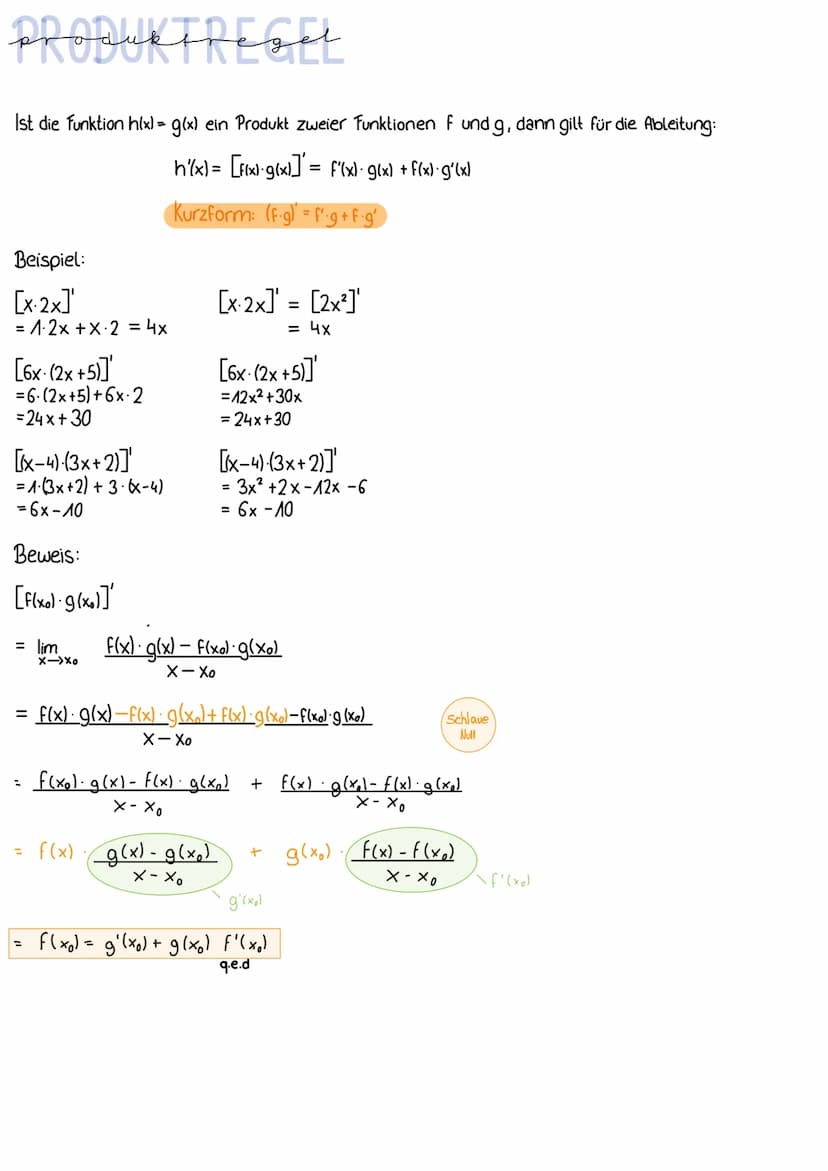 PRODUKTREGEL
produktregel
Ist die Funktion h(x) = g(x) ein Produkt zweier Funktionen f und g, dann gilt für die Ableitung:
h'(x) = [f(x)·g(x)]' = f'(x)·g(x) + f(x)·g'(x)
Kurzform: (f·g)' = f'·g + f·g'
Beispiel:
[x·2x]' [x·2x]' = [2x²]'
= 1·2x + x·2 = 4x = 4x
[6x·(2x+5)]' [6x·(2x+5)]'
= 6·(2x+5) + 6x·2 = 12x² + 30x
= 24x + 30 = 24x + 30
[(x-4)·(3x+2)]' [(x-4)·(3x+2)]'
= 1·(3x+2) + 3·(x-4) = 3x² + 2x - 12x - 6
= 6x - 10 = 6x - 10
Beweis:
[f(x₀)·g(x₀)]'
= lim x→x₀ f(x)·g(x) - f(x₀)·g(x₀)
x - x₀
= f(x)·g(x) - f(x)·g(x₀) + f(x)·g(x₀) - f(x₀)·g(x₀)
x - x₀
Schlaue
Null
= f(x₀)·g(x) - f(x)·g(x₀) + f(x)·g(x₀) - f(x)·g(x₀)
x - x₀ x - x₀
= f(x) · g(x) - g(x₀) + g(x₀) · f(x) - f(x₀)
x - x₀ x - x₀
g'(x₀) f'(x₀)
= f(x₀) = g'(x₀) + g(x₀) f'(x₀)
q.e.d